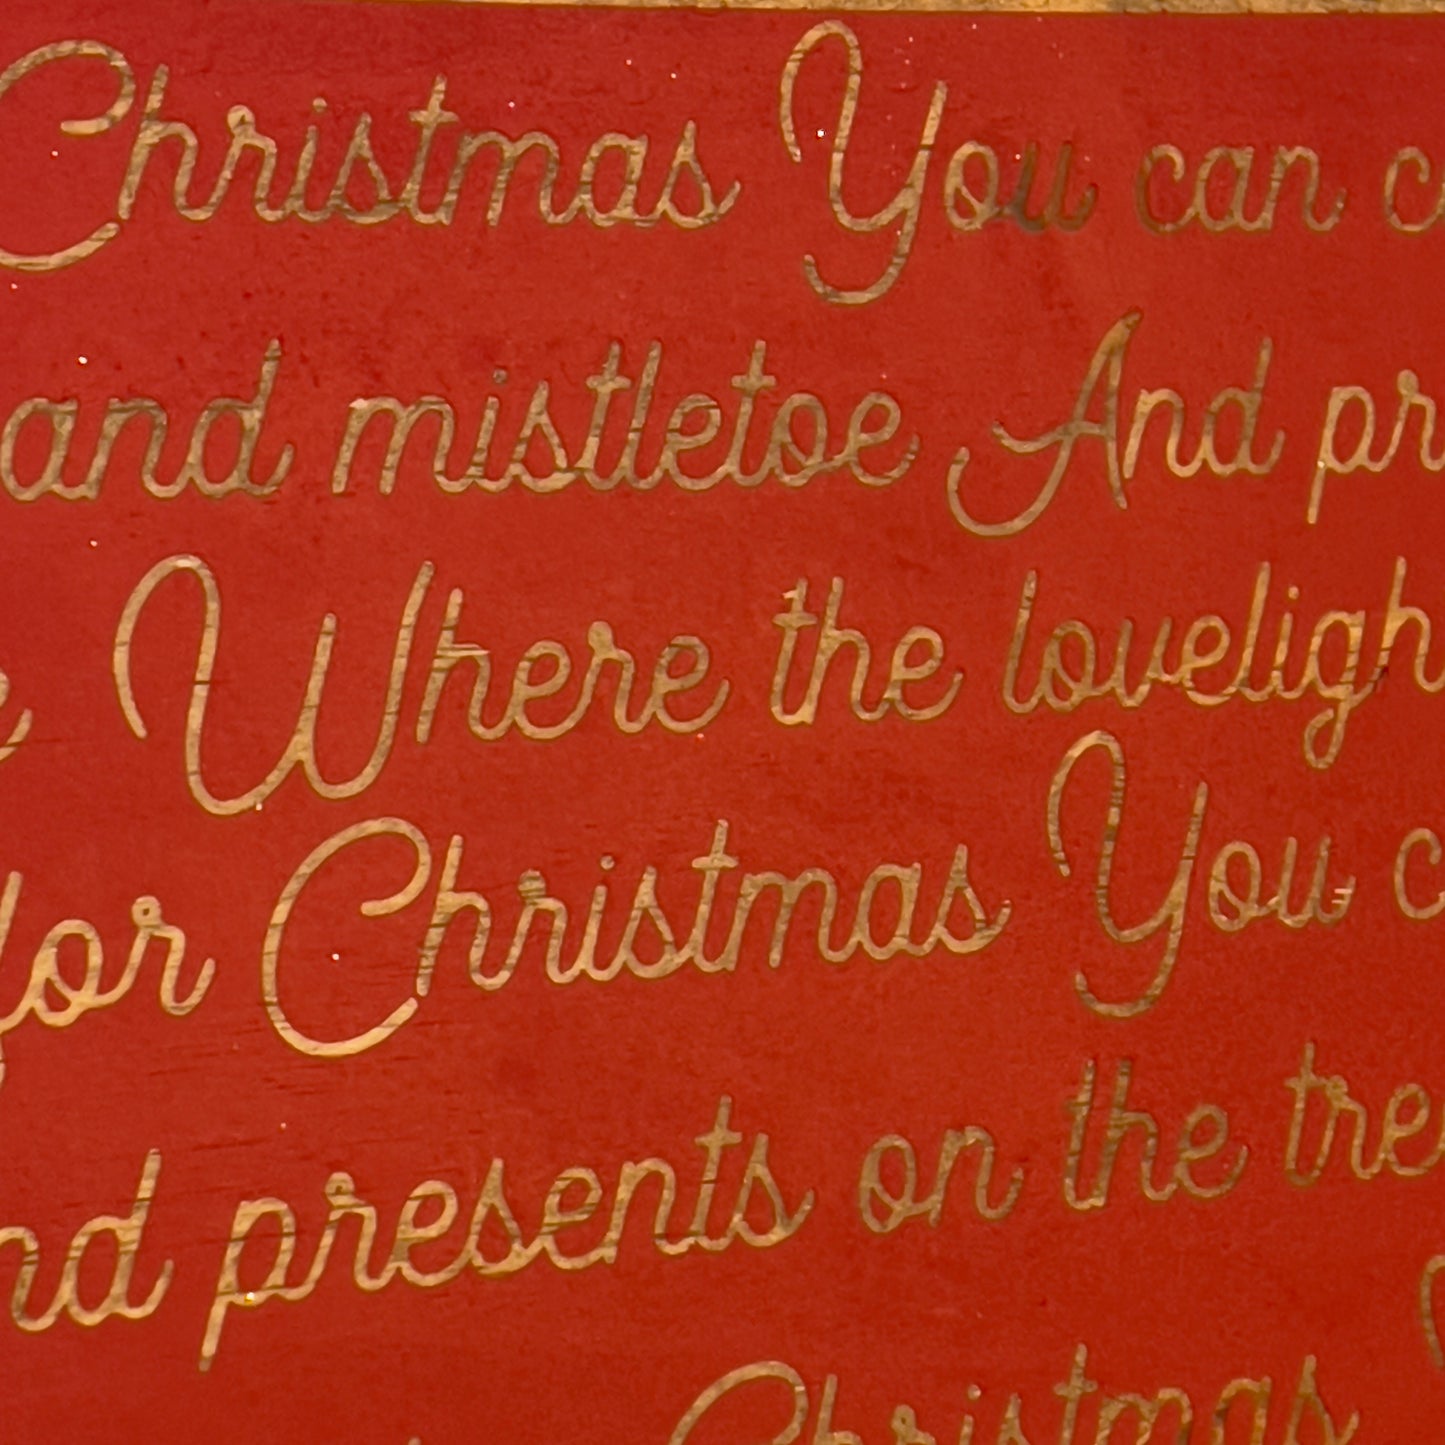 Christmas You can c
and mistletoe And pr
e Where the loveligh
for Christmas You c
nd presents on the tre
Christmas